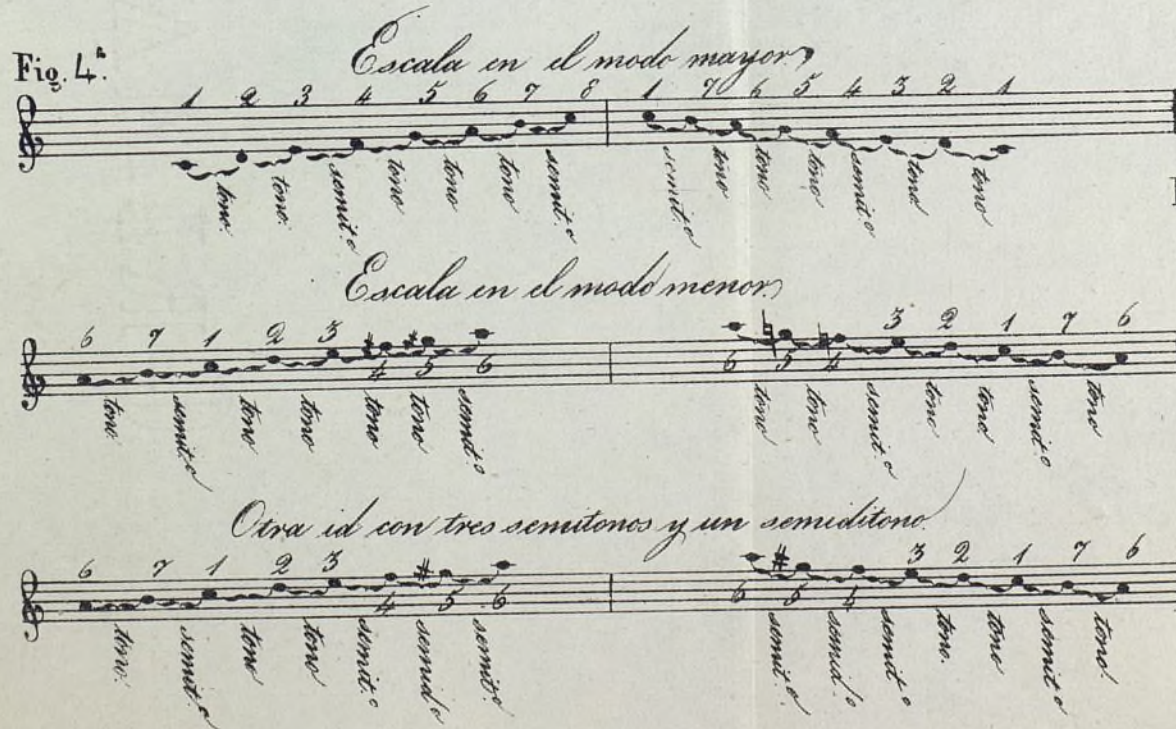 Fig. 4ª.
Escala en el modo mayor
1 2 3 4 5 6 7 8 1 7 6 5 4 3 2 1
tono. tono. semit.o tono tono tono semit.o semit.o tono tono tono semit.o tono tono
Escala en el modo menor.
6 7 1 2 3 3 2 1 7 6
4 5 6 6 5 4
tono semit.o tono tono tono tono semit.o tono tono semit.o tono tono semit.o tono
Otra id con tres semitonos y un semiditono.
6 7 1 2 3 3 2 1 7 6
4 5 6 6 5 4
tono. semit.o tono tono semit.o semid.o semit.o semit.o semid.o semit.o tono. tono semit.o tono.